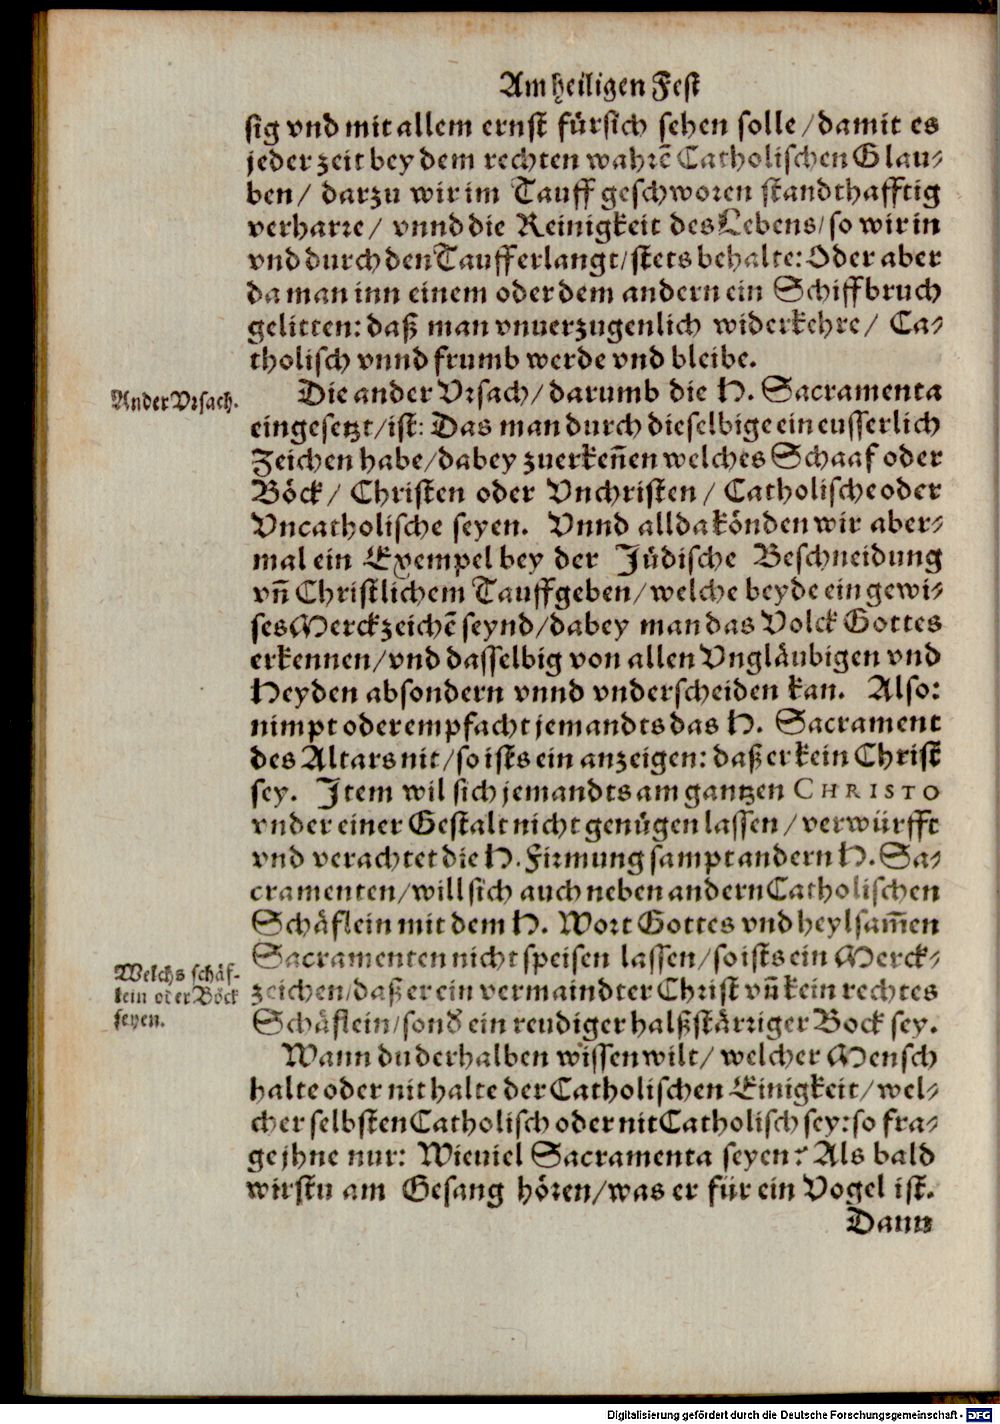 Am heiligen Fest
sig vnd mit allem ernst fürsich sehen solle / damit es
jeder zeit bey dem rechten wahrẽ Catholischen Glau-
ben / darzu wir im Tauff geschworen standthafftig
verharre / vnnd die Reinigkeit des Lebens / so wir in
vnd durch den Tauff erlangt / stets behalte: Oder aber
da man inn einem oder dem andern ein Schiffbruch
gelitten: daß man vnuerzugenlich widerkehre / Ca-
tholisch vnnd frumb werde vnd bleibe.
Ander Vrsach.
Die ander Vrsach / darumb die H. Sacramenta
eingesetzt / ist: Das man durch dieselbige ein eusserlich
Zeichen habe / dabey zuerkeñen welches Schaaf oder
Böck / Christen oder Vnchristen / Catholische oder
Vncatholische seyen. Vnnd allda könden wir aber-
mal ein Exempel bey der Jüdische Beschneidung
vñ Christlichem Tauff geben / welche beyde ein gewi-
ses Merckzeichẽ seynd / dabey man das Volck Gottes
erkennen / vnd dasselbig von allen Vngläubigen vnd
Heyden absondern vnnd vnderscheiden kan. Also:
nimpt oder empfacht jemandts das H. Sacrament
des Altars nit / so ists ein anzeigen: daß er kein Christ
sey. Jtem wil sich jemandts am gantzen CHRISTO
vnder einer Gestalt nicht genügen lassen / verwürfft
vnd verachtet die H. Firmung sampt andern H. Sa-
cramenten / will sich auch neben andern Catholischen
Schäflein mit dem H. Wort Gottes vnd heylsam̃en
Sacramenten nicht speisen lassen / so ists ein Merck-
zeichen / daß er ein vermaindter Christ vñ kein rechtes
Schäflein / sond̕ ein reudiger halßstärriger Bock sey.
Welchs schäf-
lein oder Böck
seyen.
Wann du derhalben wissen wilt / welcher Mensch
halte oder nit halte der Catholischen Einigkeit / wel-
cher selbsten Catholisch oder nit Catholisch sey: so fra-
ge jhne nur: Wieuiel Sacramenta seyen? Als bald
wirstu am Gesang hören / was er für ein Vogel ist.
Dann
Digitalisierung gefördert durch die Deutsche Forschungsgemeinschaft - DFG